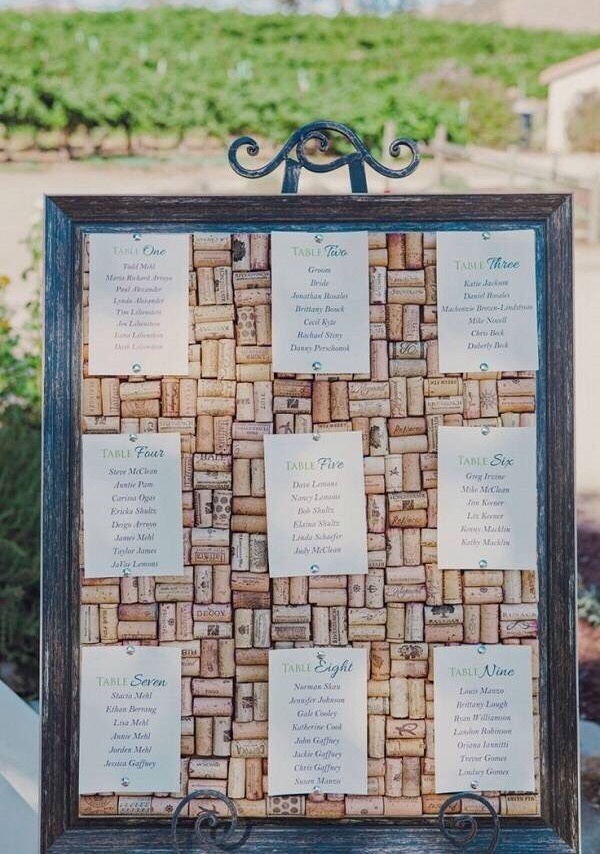 TABLE One
Todd Mehl
Maria Rickard Arroyo
Paul Alexander
Lynda Alexander
Tim Lilienstein
Jen Lilienstein
Lilienstein
Lilienstein
TABLE Two
Groom
Bride
Jonathan Rosales
Brittany Bouck
Cecil Kyte
Rachael Stiny
Danny Perschonok
TABLE Three
Katie Jackson
Daniel Rosales
Mackenzie Brown-Lindstrom
Mike Nowell
Chris Beck
Daberly Beck
TABLE Four
Steve McClean
Auntie Pam
Carissa Ogas
Ericka Shultz
Deigo Arroyo
James Mehl
Taylor James
JaVae Lemons
TABLE Five
Dave Lemons
Nancy Lemons
Bob Shultz
Elaina Shultz
Linda Schaefer
Judy McClean
TABLE Six
Greg Irvine
Mike McClean
Jim Keener
Liz Keener
Kenny Macklin
Kathy Macklin
TABLE Seven
Stacia Mehl
Ethan Berrang
Lisa Mehl
Annie Mehl
Jorden Mehl
Jessica Gaffney
TABLE Eight
Norman Skau
Jennifer Johnson
Gale Cooley
Katherine Cook
John Gaffney
Jackie Gaffney
Chris Gaffney
Susan Manzo
TABLE Nine
Louis Manzo
Brittany Laugh
Ryan Williamson
Landon Robinson
Oriana Iannitti
Trevor Gomes
Lindsey Gomes
DECOY